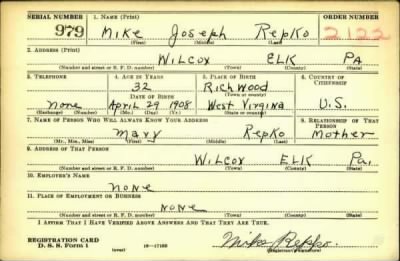 SERIAL NUMBER 1. NAME (Print) ORDER NUMBER
979 Mike Joseph Repko 2122
(First) (Middle) (Last)
2. ADDRESS (Print)
Wilcox ELK PA
(Number and street or R. F. D. number) (Town) (County) (State)
3. TELEPHONE 4. AGE IN YEARS 5. PLACE OF BIRTH 6. COUNTRY OF CITIZENSHIP
32 Richwood
DATE OF BIRTH (Town or county)
None April 29 1908 West Virgina U.S.
(Exchange) (Number) (Mo.) (Day) (Yr.) (State or country)
7. NAME OF PERSON WHO WILL ALWAYS KNOW YOUR ADDRESS 8. RELATIONSHIP OF THAT PERSON
Mary Repko Mother
(Mr., Mrs., Miss) (First) (Middle) (Last)
9. ADDRESS OF THAT PERSON
Wilcox ELK Pa.
(Number and street or R. F. D. number) (Town) (County) (State)
10. EMPLOYER'S NAME
none
11. PLACE OF EMPLOYMENT OR BUSINESS
none
(Number and street or R. F. D. number) (Town) (County) (State)
I AFFIRM THAT I HAVE VERIFIED ABOVE ANSWERS AND THAT THEY ARE TRUE.
REGISTRATION CARD
D. S. S. Form 1 (over) 16-17105 Mike Repko.